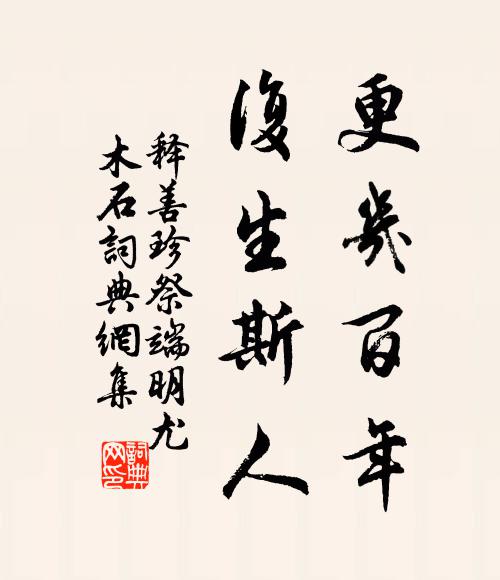 更幾百年
復生斯人
释善珍祭端明尤
木石詞典網集
詞典
网印